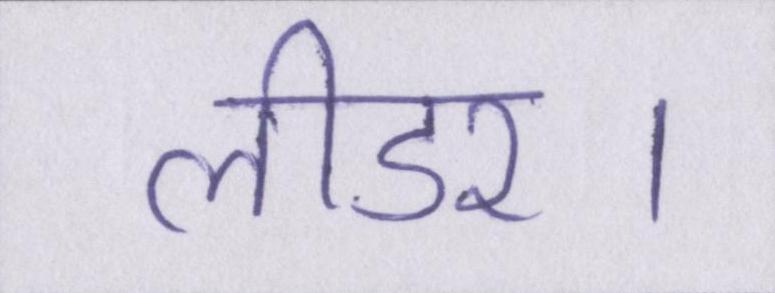 लीडर ।